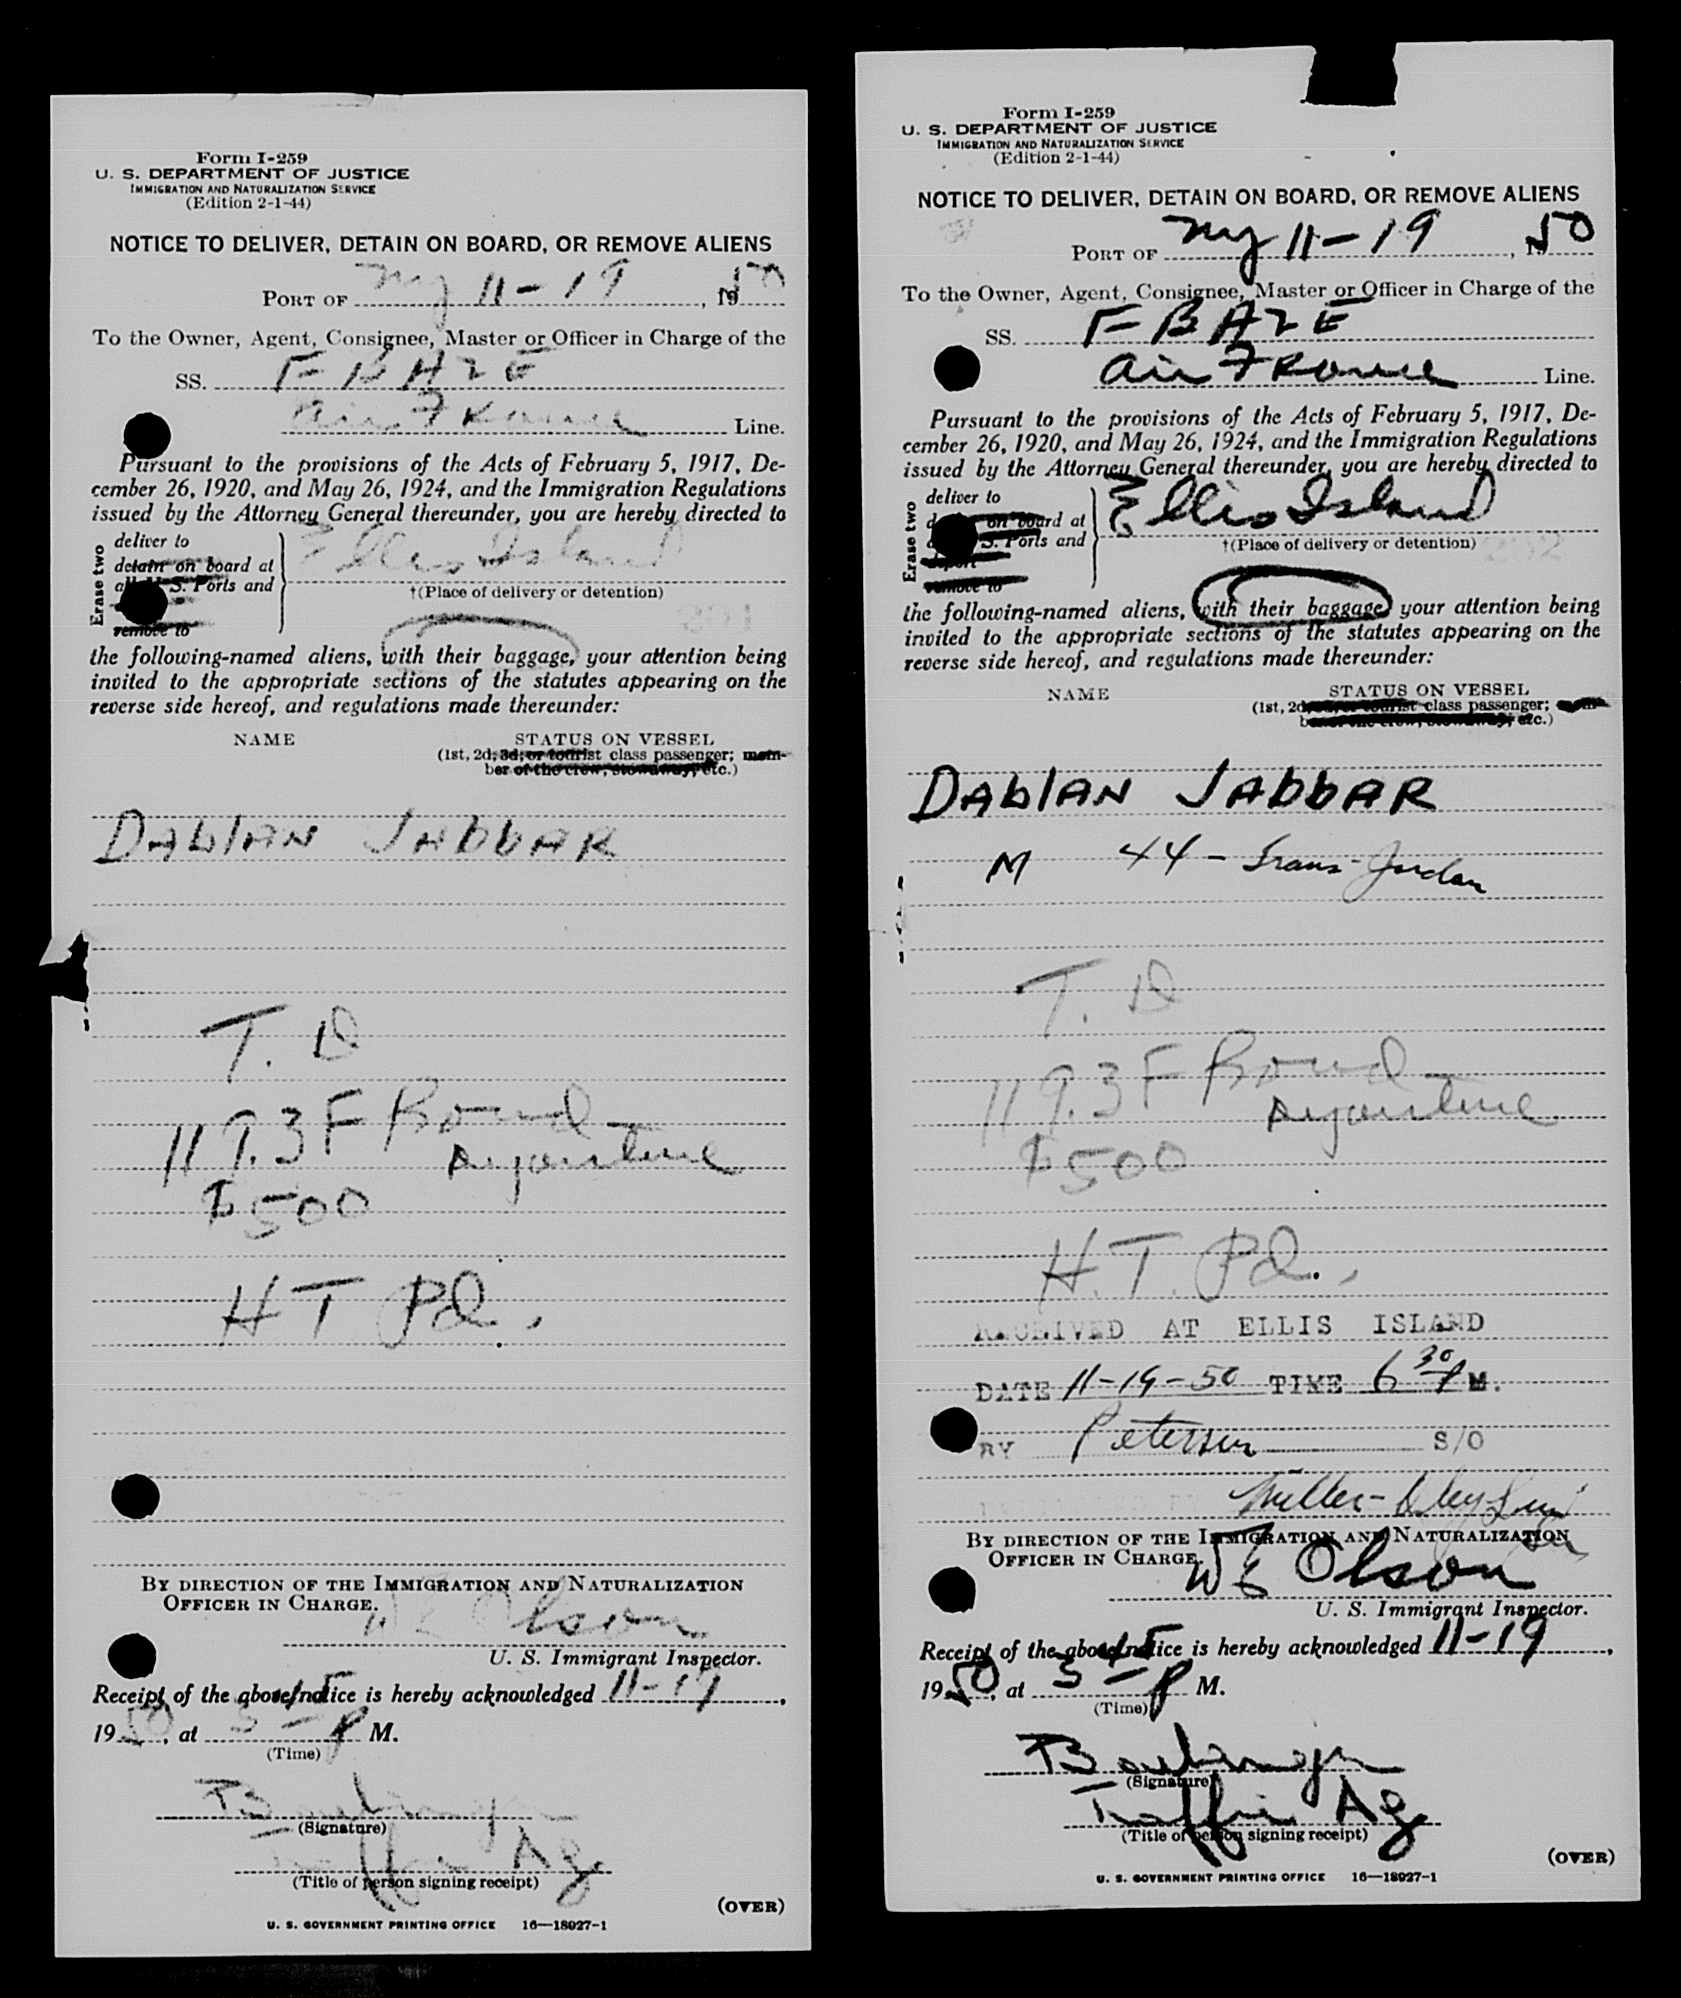 Form I-259
U. S. DEPARTMENT OF JUSTICE
IMMIGRATION AND NATURALIZATION SERVICE
(Edition 2-1-44)
NOTICE TO DELIVER, DETAIN ON BOARD, OR REMOVE ALIENS
PORT OF NY 11-19, 1950
To the Owner, Agent, Consignee, Master or Officer in Charge of the
SS. F BAZE
Air France Line.
Pursuant to the provisions of the Acts of February 5, 1917, De-
cember 26, 1920, and May 26, 1924, and the Immigration Regulations
issued by the Attorney General thereunder, you are hereby directed to
Erase two
deliver to
detain on board at
all U. S. Ports and
remove to
Ellis Island
†(Place of delivery or detention)
the following-named aliens, with their baggage, your attention being
invited to the appropriate sections of the statutes appearing on the
reverse side hereof, and regulations made thereunder:
NAME STATUS ON VESSEL
(1st, 2d, 3d, or tourist class passenger; mem-
ber of the crew, stowaway, etc.)
DAblAN JAbbAR
T. D
119.3F Bond
Argentine
$500
H T Pd.
BY DIRECTION OF THE IMMIGRATION AND NATURALIZATION
OFFICER IN CHARGE.
WE Olson
U. S. Immigrant Inspector.
Receipt of the above notice is hereby acknowledged 11-19,
1950, at 5 45 P M.
(Time)
(Signature)
Traffic Ag
(Title of person signing receipt)
(OVER)
U. S. GOVERNMENT PRINTING OFFICE 16—18027-1
Form I-259
U. S. DEPARTMENT OF JUSTICE
IMMIGRATION AND NATURALIZATION SERVICE
(Edition 2-1-44)
NOTICE TO DELIVER, DETAIN ON BOARD, OR REMOVE ALIENS
PORT OF NY 11-19, 1950
To the Owner, Agent, Consignee, Master or Officer in Charge of the
SS. F BAZE
Air France Line.
Pursuant to the provisions of the Acts of February 5, 1917, De-
cember 26, 1920, and May 26, 1924, and the Immigration Regulations
issued by the Attorney General thereunder, you are hereby directed to
Erase two
deliver to
on board at
S. Ports and
remove to
Ellis Island
†(Place of delivery or detention)
the following-named aliens, with their baggage, your attention being
invited to the appropriate sections of the statutes appearing on the
reverse side hereof, and regulations made thereunder:
NAME STATUS ON VESSEL
(1st, 2d, 3d, or tourist class passenger; mem-
ber of the crew, stowaway, etc.)
DAblAN JAbbAR
M 44 - Trans-Jordan
T. D
119.3F Bond
Argentine
$500
H. T. Pd.
RECEIVED AT ELLIS ISLAND
DATE 11-19-50 TIME 6 30 P M.
BY Petersen S/O
BY DIRECTION OF THE IMMIGRATION AND NATURALIZATION
OFFICER IN CHARGE.
WE Olson
U. S. Immigrant Inspector.
Receipt of the above notice is hereby acknowledged 11-19,
1950, at 5 45 P M.
(Time)
(Signature)
Traffic Ag
(Title of person signing receipt)
(OVER)
U. S. GOVERNMENT PRINTING OFFICE 16—18027-1